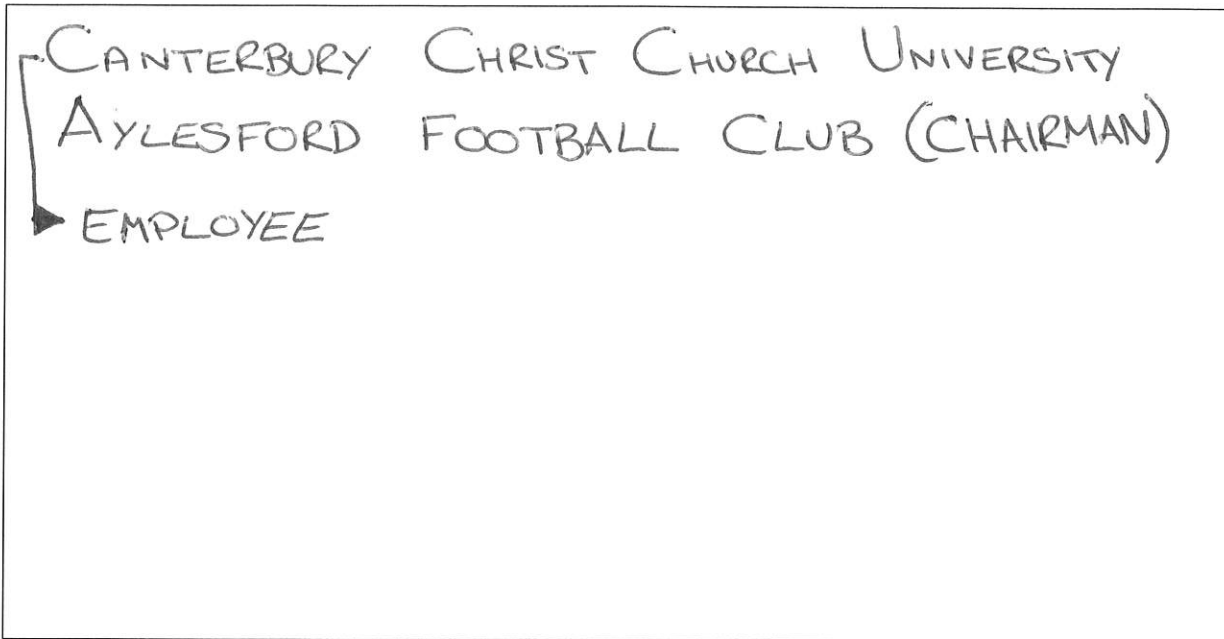 CANTERBURY CHRIST CHURCH UNIVERSITY
AYLESFORD FOOTBALL CLUB (CHAIRMAN)
EMPLOYEE